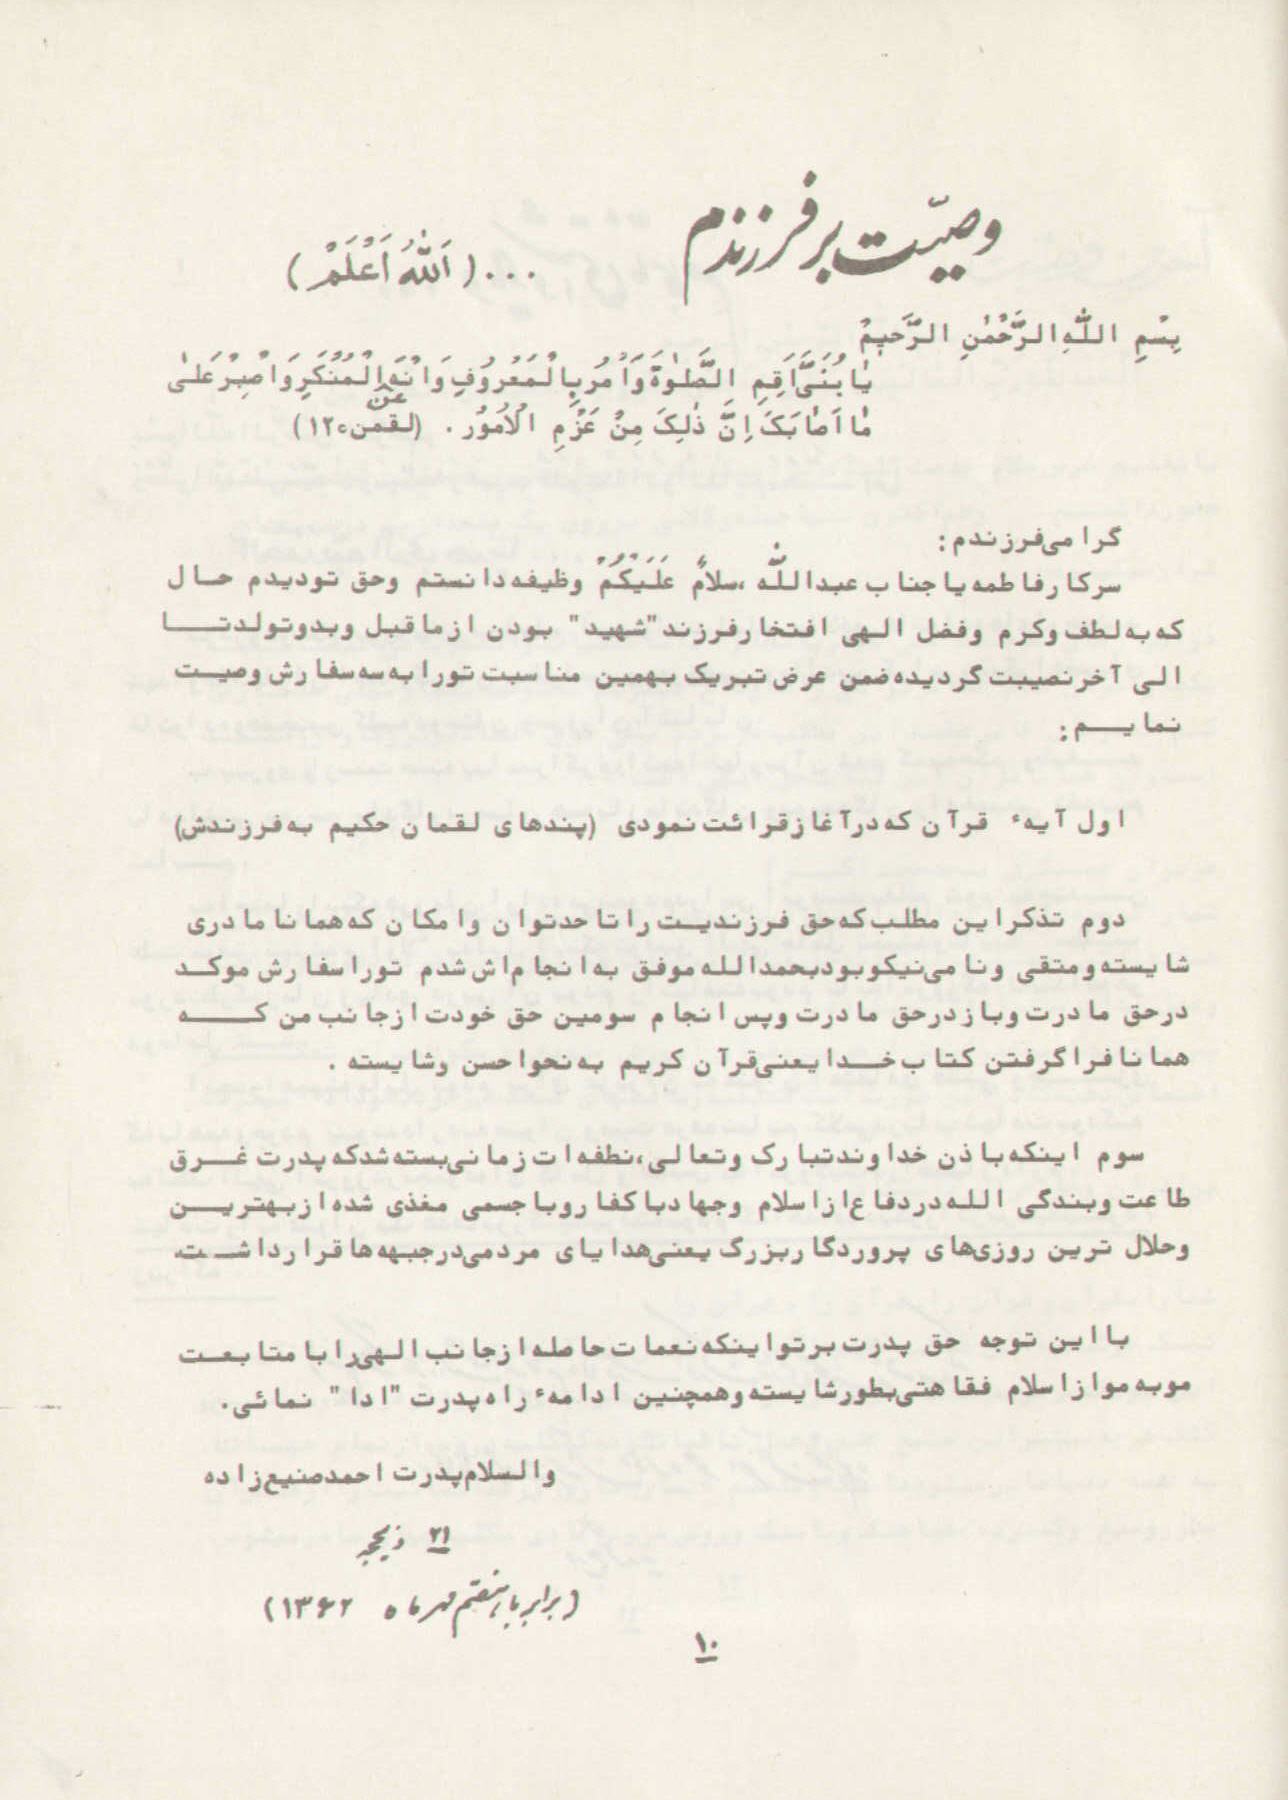 وصیّت بر فرزندم ... (اَللّٰهُ اَعْلَمْ)
بِسْمِ اللّٰهِ الرَّحْمٰنِ الرَّحیٖمْ
یٰا بُنَیَّ اَقِمِ الصَّلوٰةَ وَاْمُرْ بِالْمَعْرُوفِ وَانْهَ عَنِ الْمُنْکَرِ وَاصْبِرْ عَلیٰ
مٰا اَصٰابَکَ اِنَّ ذٰلِکَ مِنْ عَزْمِ الْاُمُوْرِ . (لقمن ١٢٠)
گرامی فرزندم:
سرکار فاطمه یا جناب عبداللّٰه ،سلامٌ عَلَیْکُمْ وظیفه دانستم وحق تو دیدم حال
که به لطف وکرم وفضل الهی افتخار فرزند "شهید" بودن از ماقبل وبدو تولد تا
الی آخر نصیبت گردیده ضمن عرض تبریک بهمین مناسبت تو را به سه سفارش وصیت
نمایم:
اول آیهٔ قرآن که در آغاز قرائت نمودی (پندهای لقمان حکیم به فرزندش)
دوم تذکر این مطلب که حق فرزندیت را تا حد توان وامکان که همانا مادری
شایسته ومتقی ونامی نیکو بود بحمدالله موفق به انجام‌اش شدم تو را سفارش موکد
در حق مادرت وباز در حق مادرت وپس انجام سومین حق خودت از جانب من که
همانا فراگرفتن کتاب خدا یعنی قرآن کریم به نحو احسن وشایسته .
سوم اینکه باذن خداوند تبارک وتعالی،نطفه‌ات زمانی بسته شد که پدرت غرق
طاعت وبندگی الله در دفاع از اسلام وجهاد با کفار وبا جسمی مغذی شده از بهترین
وحلال ترین روزی‌های پروردگار بزرگ یعنی هدایای مردمی در جبهه‌ها قرار داشت.
با این توجه حق پدرت بر تو اینکه نعمات حاصله از جانب الهی را با متابعت
موبه مو از اسلام فقاهتی بطور شایسته وهمچنین ادامهٔ راه پدرت "ادا" نمائی.
والسلام پدرت احمد صنیع‌زاده
۲۱ ذیحجه
(برابر با هفتم مهر ماه ۱۳۶۲)
۱۰